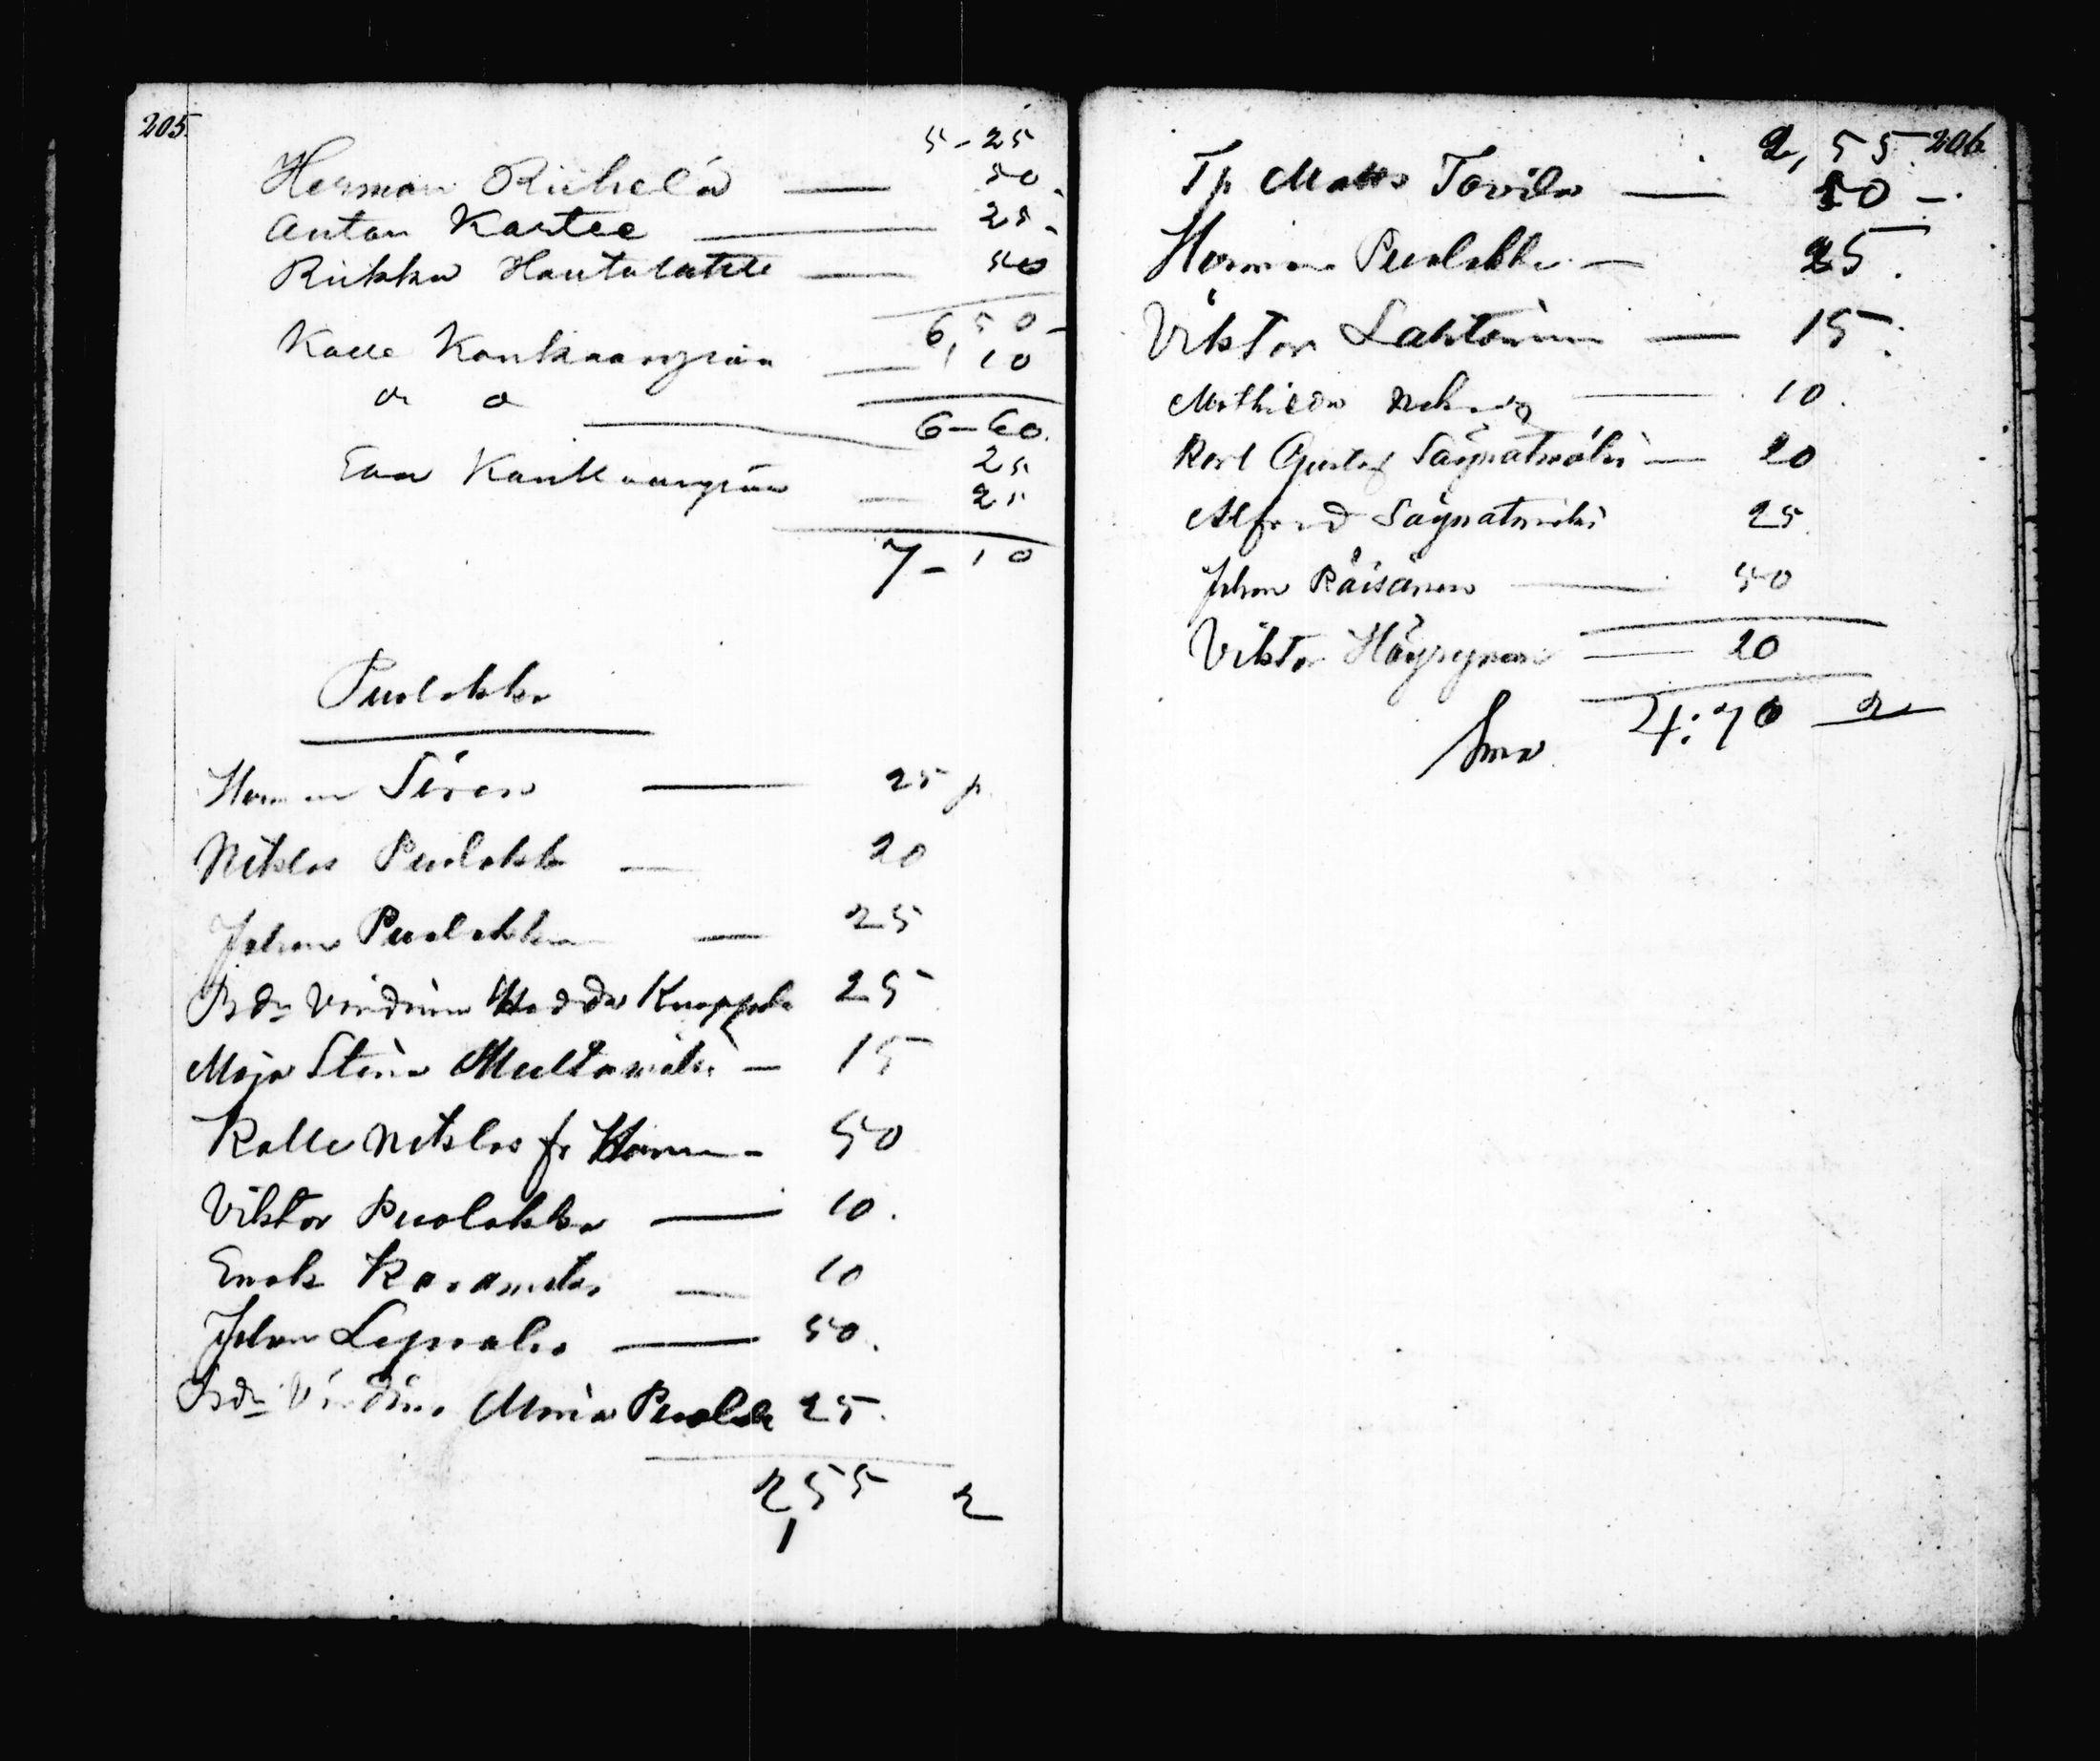 205
5-25
Herman Riihelä — 50.
Anton Kartee — 25.
Riikka Hautalahti — 50
6,50-
Kalle Kankaanpää — 10
6-60.
Eva Kankaanpää 25
— 25
7-10
Puolakka
Herman Siren — 25 p.
Niklas Puolakk — 20
Johan Puolakka — 25
Hedda 25
Maja Stina Multamäki — 15
Kalle Niklas fr Herm - 50
Viktor Puolakka — 10.
Enok — 10
Johan Lepealis — 50.
Maria Puolak 25.
2,55 2
206
2,55
Tp Matts Tovila — 50 -.
Herman Puolakka — 25.
Viktor Lahtonen — 15.
Mathilda — 10.
Karl Gustaf Säynätmäki — 20
Alfred Säynätmäki 25.
Johan Räisänen — 50
Viktor Häyrynen — 20
Sma 4:70 2